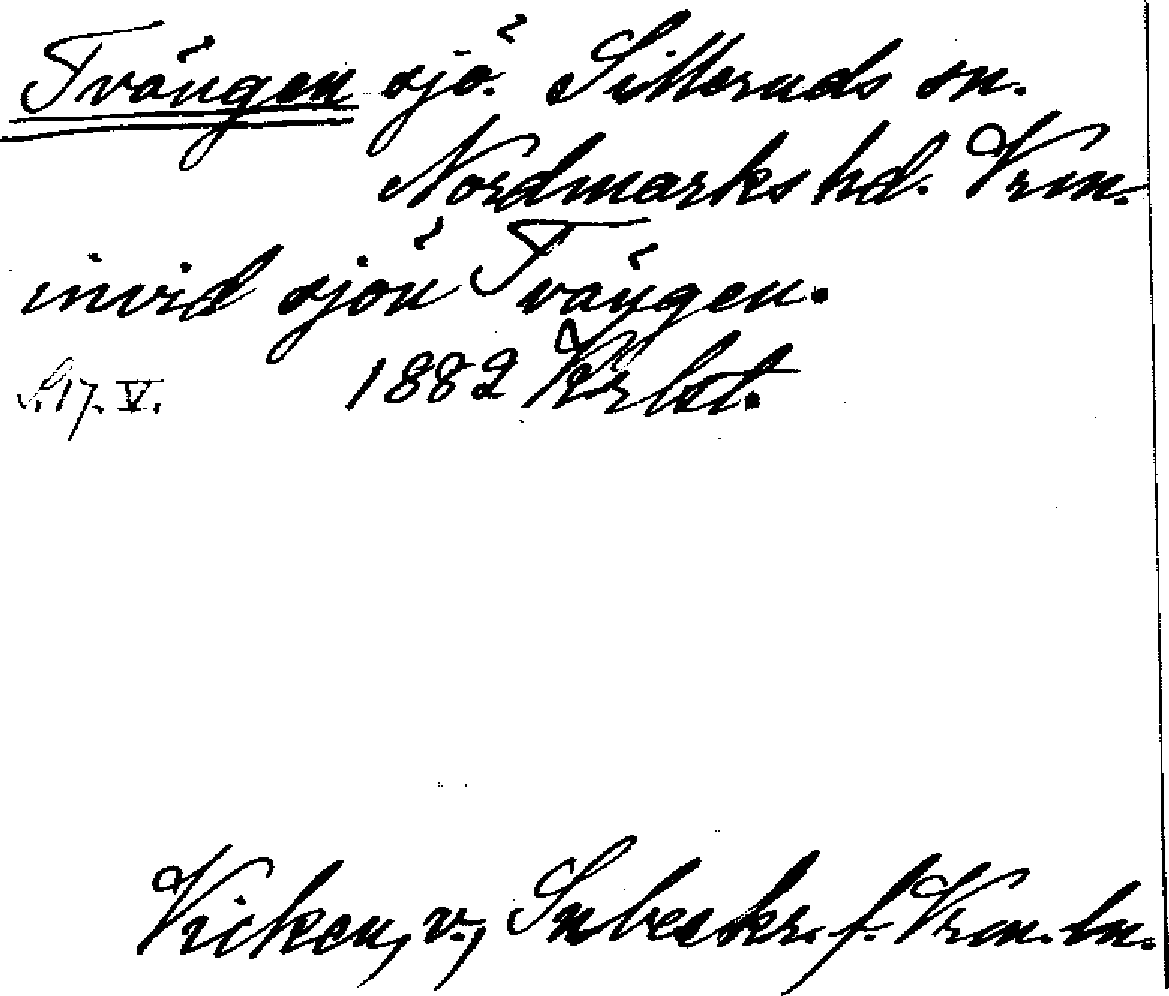 Tvängen sjö. Silleruds sn.
Nordmarks hd. Vrm.
invid sjön Tvängen.
S. 17. V. 1882
Vicken, v., Snbeskr. f. Vrm. ln.